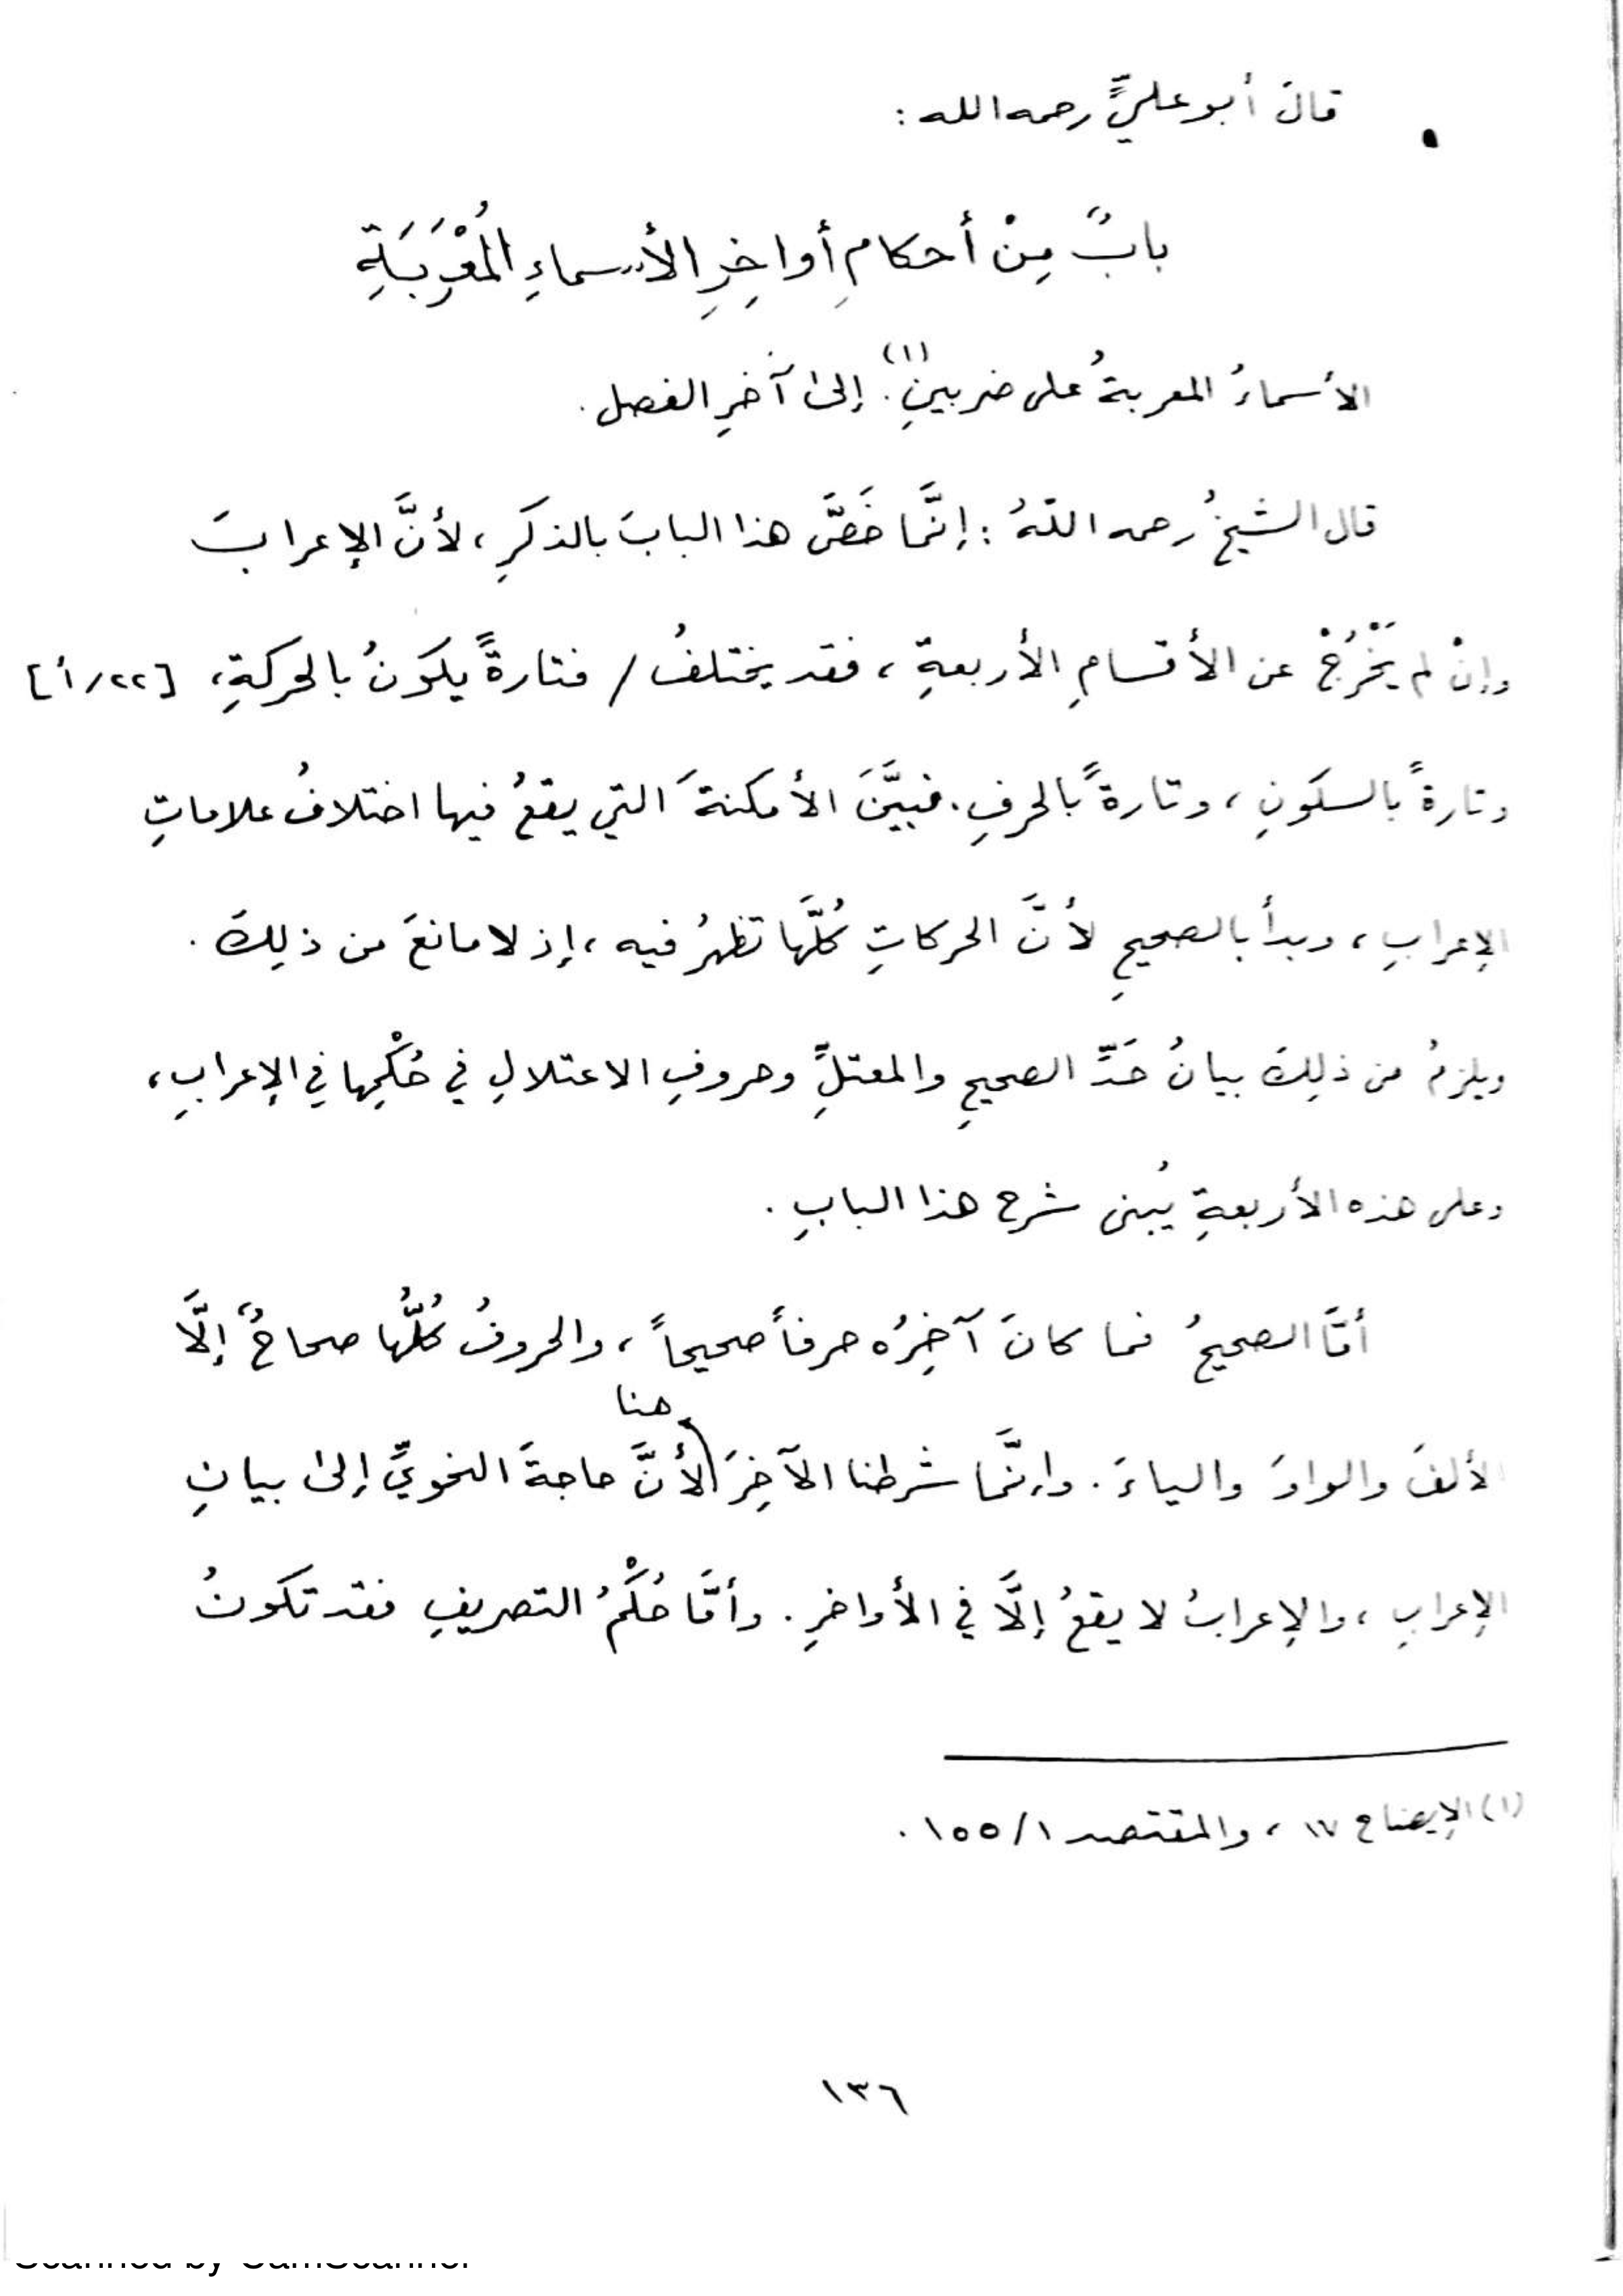 قالَ أبو عليٍّ رحمه الله :
بابٌ مِنْ أحكامِ أواخِرِ الأسماءِ المُعْرَبَةِ
الأسماءُ المعربةُ على ضربينِ(١). إلىٰ آخرِ الفصل .
قال الشيخُ رحمه اللهُ : إنَّما خَصَّ هذا البابَ بالذكرِ ، لأنَّ الإعرابَ
وإنْ لم يَخْرُجْ عن الأقسامِ الأربعةِ ، فقد يختلفُ / فتارةً يكونُ بالحركةِ، [٢٢/أ]
وتارةً بالسكونِ ، وتارةً بالحرفِ . فبيَّنَ الأمكنةَ التي يقعُ فيها اختلافُ علاماتِ
الإعرابِ ، وبدأ بالصحيحِ لأنَّ الحركاتِ كُلَّها تظهرُ فيه ، إذ لا مانعَ من ذلِكَ .
ويلزمُ من ذلِكَ بيانُ حَدِّ الصحيحِ والمعتلِّ وحروفِ الاعتلالِ في حُكْمِها في الإعرابِ ،
وعلى هذه الأربعةِ يُبنى شرح هذا البابِ .
أمَّا الصحيحُ فما كانَ آخِرُه حرفاً صحيحاً ، والحروفُ كُلُّها صحاحٌ إلَّا
الألفَ والواوَ والياءَ . وإنَّما شرطنا الآخِرَ هنا لأنَّ حاجةَ النحويِّ إلىٰ بيانِ
الإعرابِ ، والإعرابُ لا يقعُ إلَّا في الأواخرِ . وأمَّا حُكْمُ التصريفِ فقد تكونُ
(١) الإيضاح ١٧ ، والمقتصد ١/١٥٥ .
١٣٦
Scanned by CamScanner